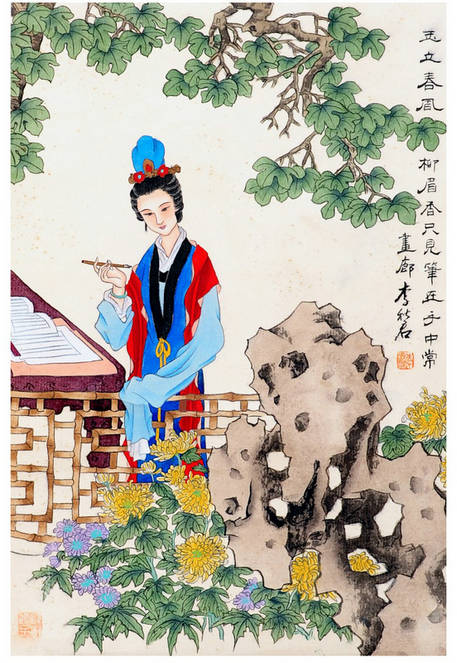 玉立春風柳眉香只見筆在手中常
畫廊李秋君